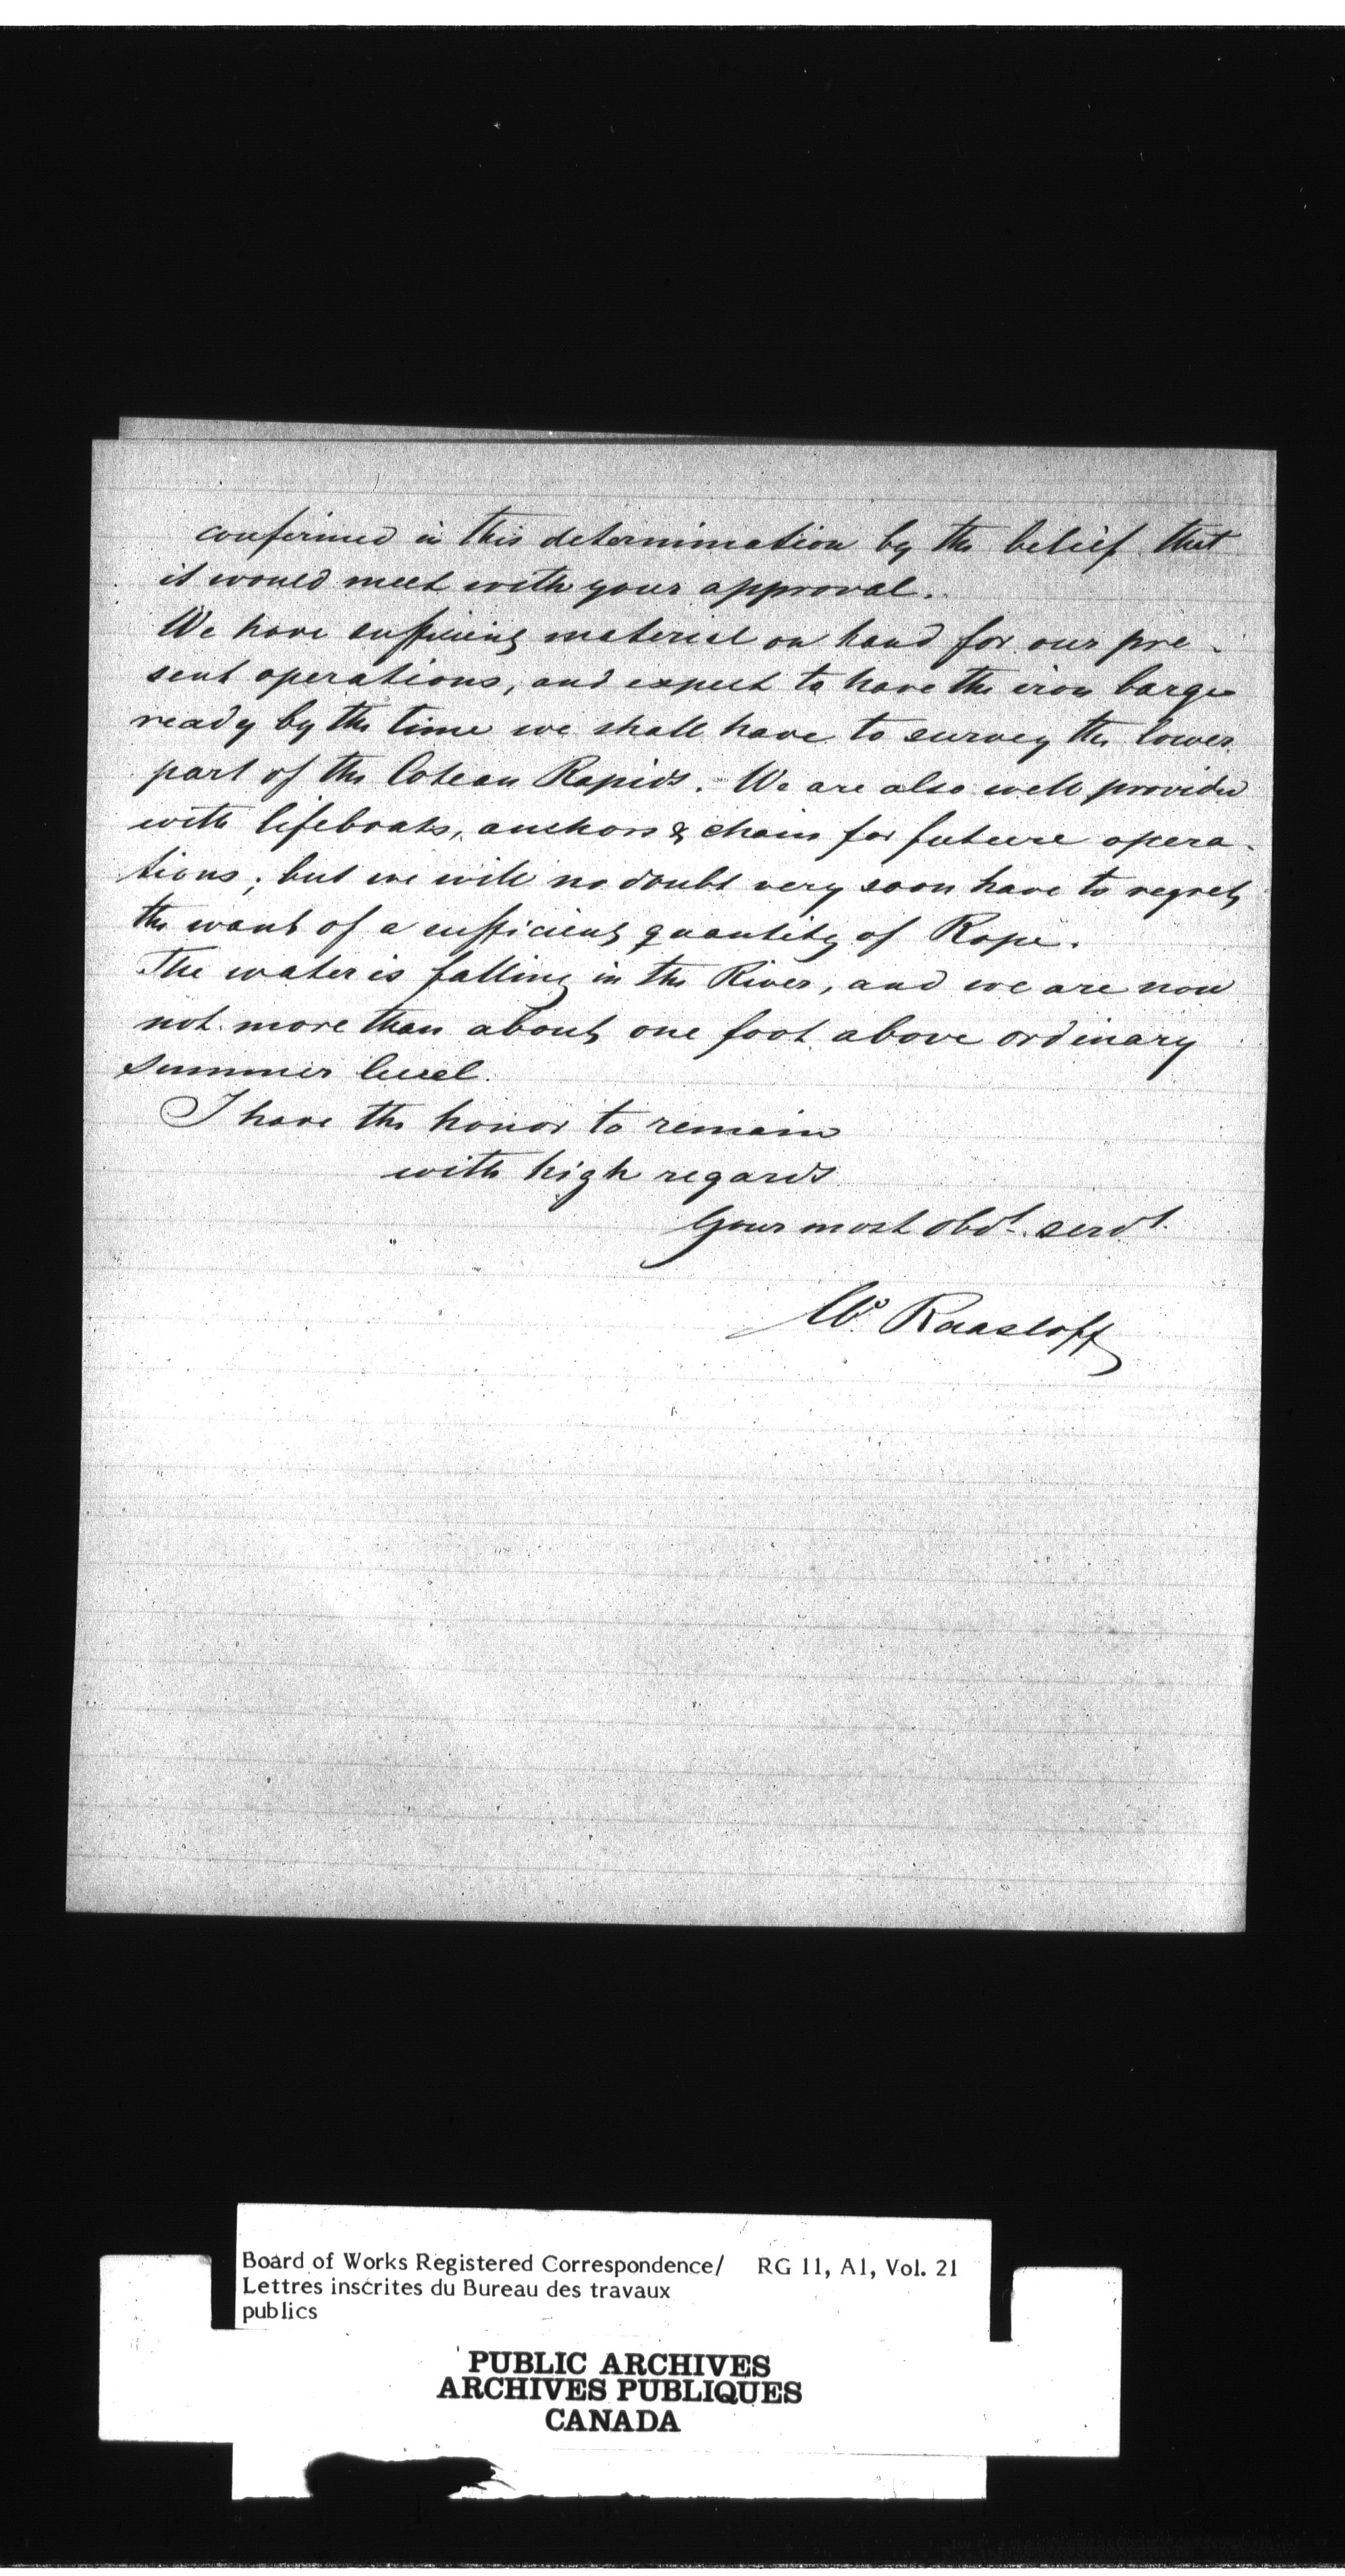 confirmed in this determination by the belief that
it would meet with your approval.
We have sufficient material on hand for our pre-
sent operations, and expect to have the iron barge
ready by the time we shall have to survey the lower
part of the Coteau Rapids. We are also well provided
with lifeboats, anchors & chains for future opera-
tions; but we will no doubt very soon have to regret
the want of a sufficient quantity of Rope.
The water is falling in the River, and we are now
not more than about one foot above ordinary
summer level.
I have the honor to remain
with high regards
Your most obdt. servt.
W. Raasloff
Board of Works Registered Correspondence/ RG 11, A1, Vol. 21
Lettres inscrites du Bureau des travaux
publics
PUBLIC ARCHIVES
ARCHIVES PUBLIQUES
CANADA